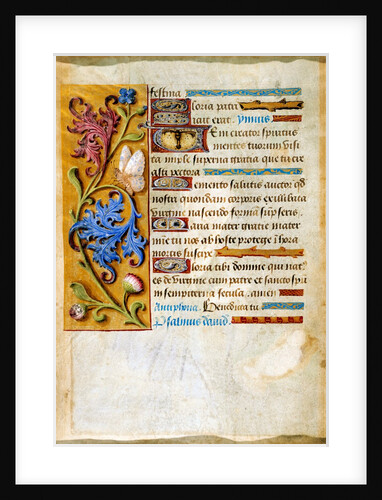 festina
Gloria patri
sicut erat. ymnus
Veni creator spiritus
mentes tuorum visi
ta imple superna gratia que tu cre
asti pectora Memento salutis auctor qd
nostri quondam corporis ex illibata
virgine nascendo formā sūpseris.
Maria mater gratie mater
mīe tu nos ab hoste protege ī hora
mortis suscipe
Gloria tibi domine qui nat9
es de virgine cum patre et sancto spū
in sempiterna secula. amen
Antiphona. Benedicta tu
Psalmus david.